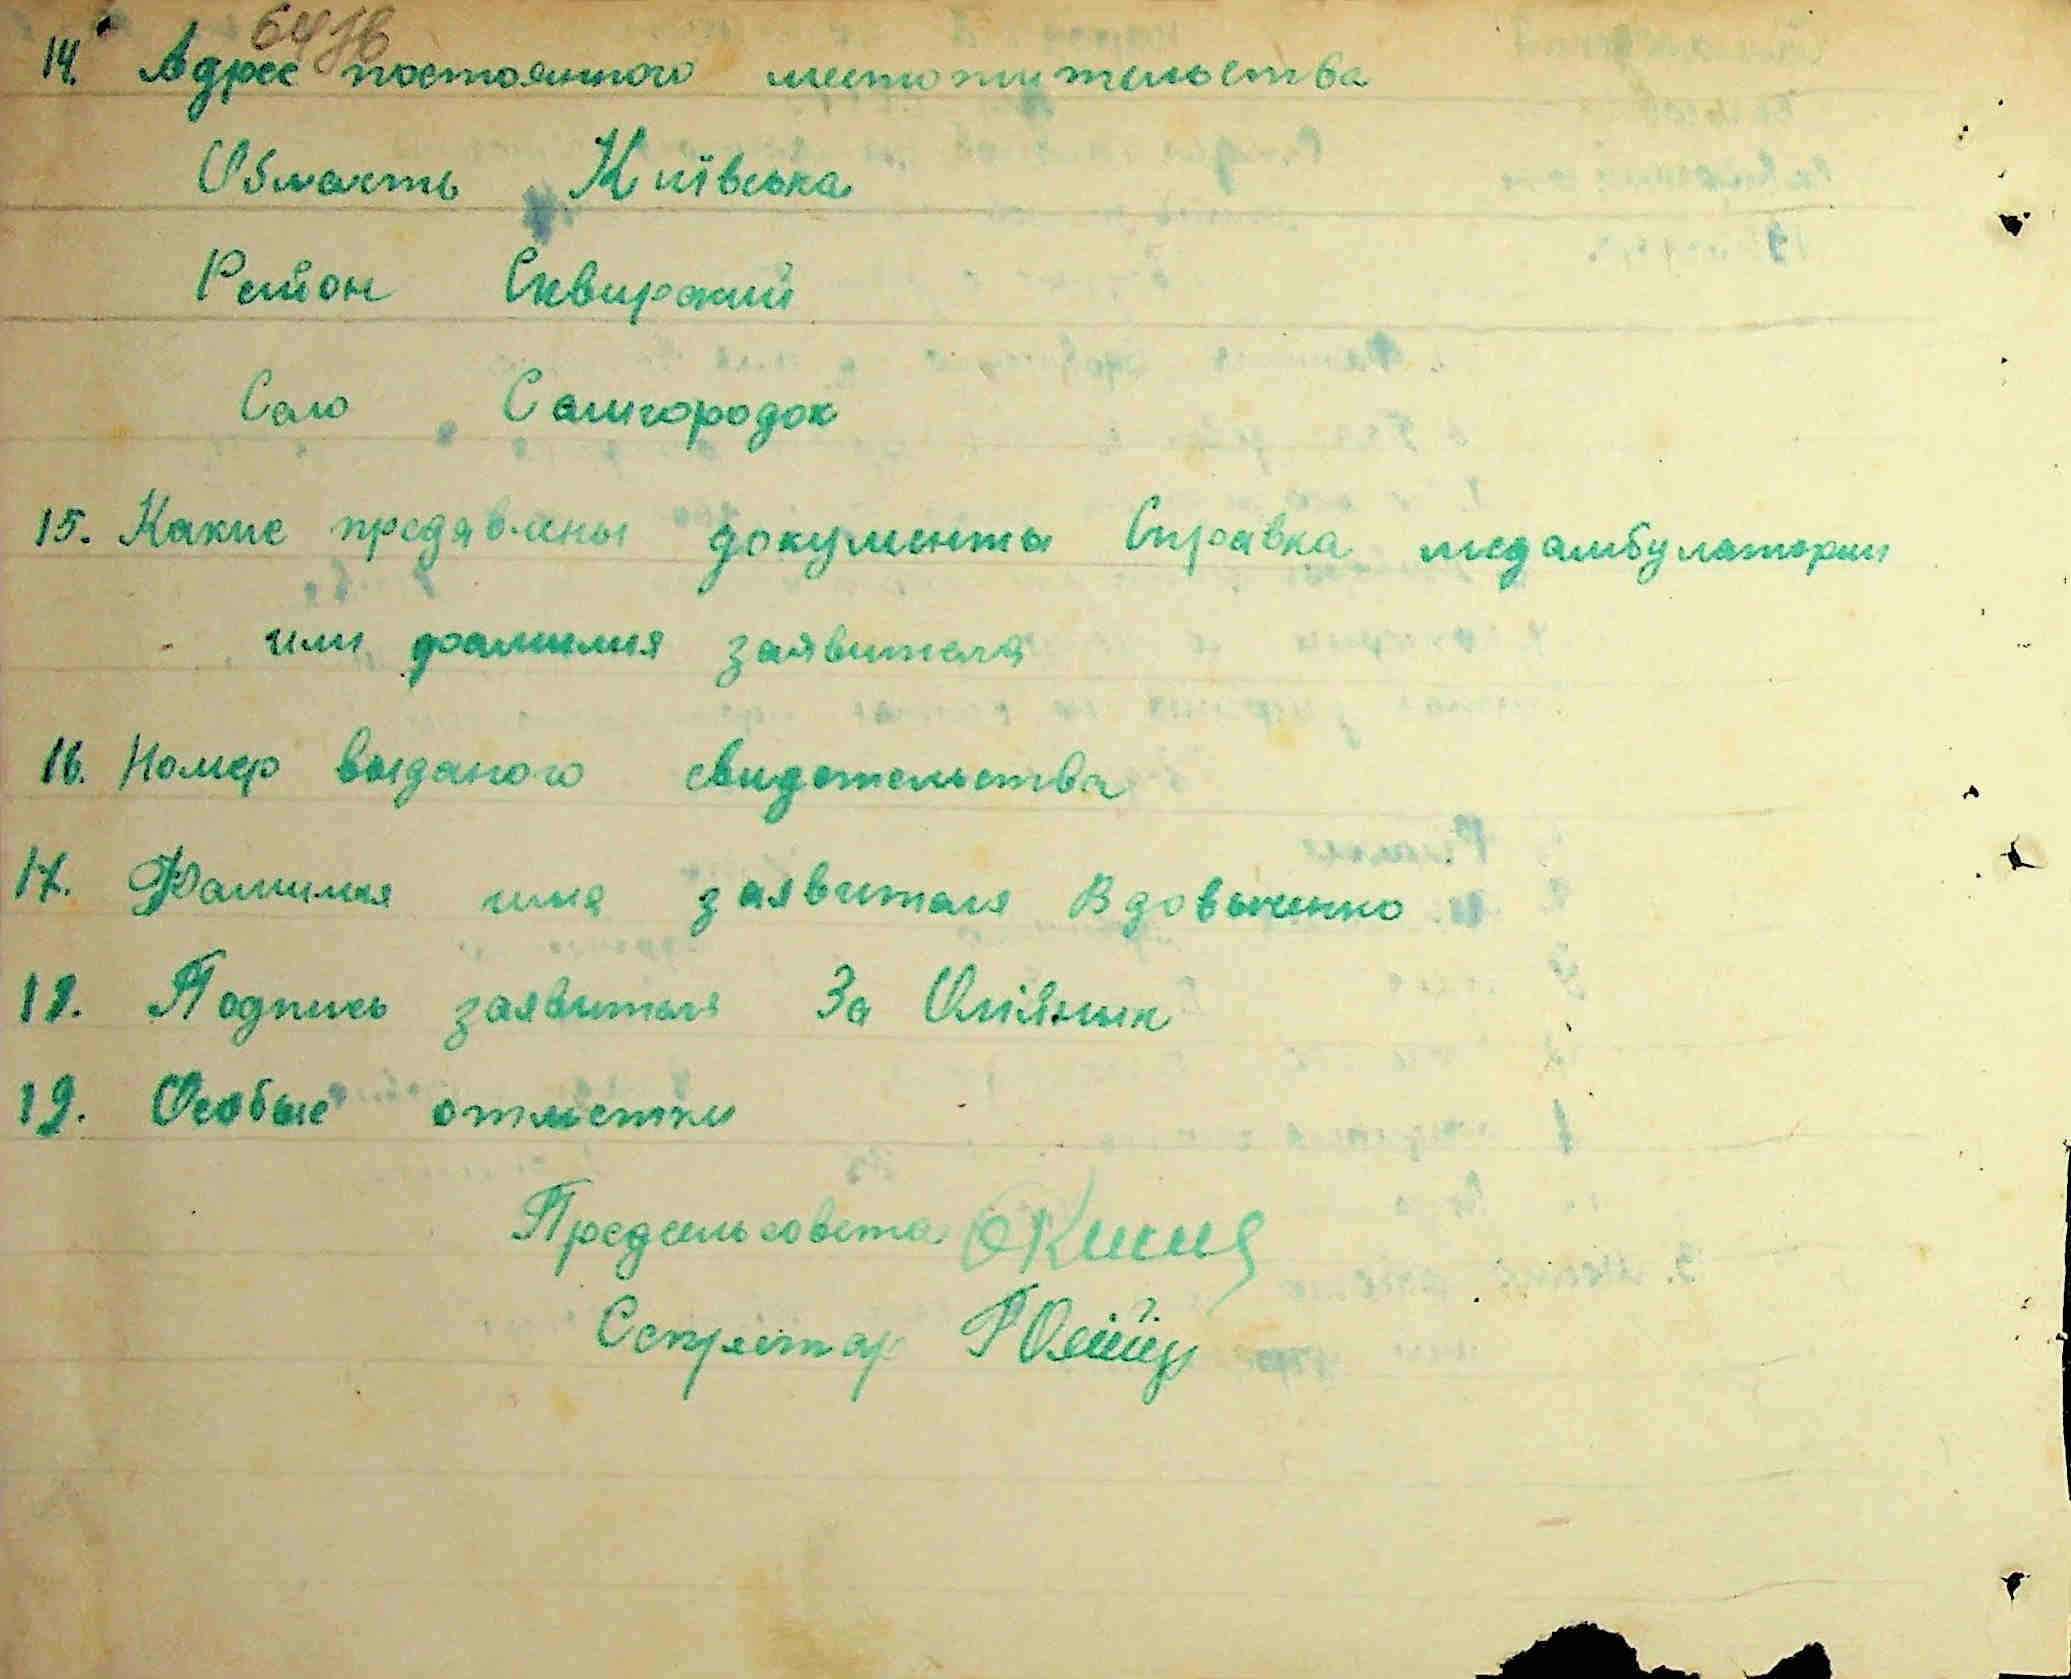 14. Адрес постоянного местожительства
Область Київська
Район Сквирский
Село Самгородок
15. Какие предявлены документы Справка медамбулатории
или фамилия заявителя
16. Номер выданого свидетельства
17. Фамилия имя заявителя Вдовыченко
18. Подпись заявителя За Олійник
19. Особые отметки
Предсельсовета
Секретар